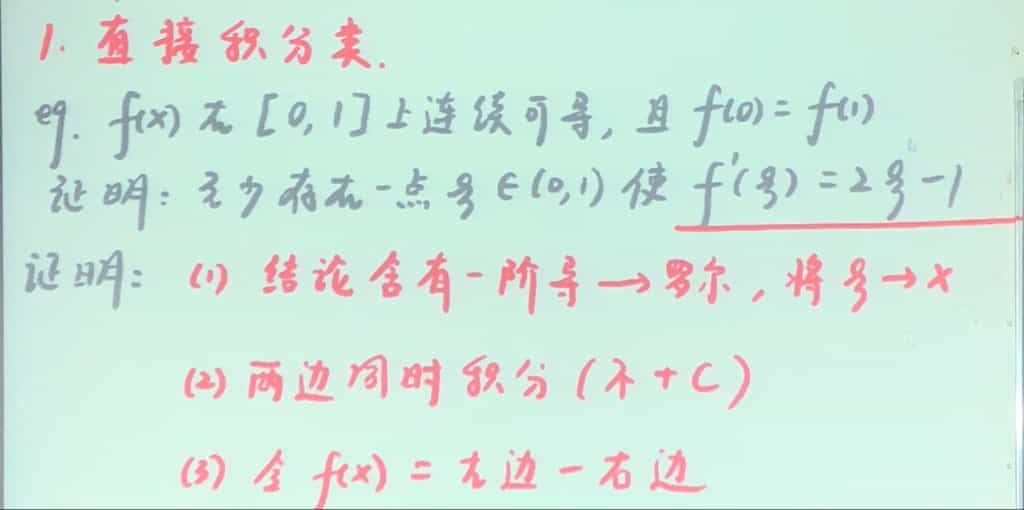 1. 直接积分类.
eg. f(x) 在 [0,1] 上连续可导, 且 f(0) = f(1)
证明: 至少存在一点 ξ ∈ (0,1) 使 f'(ξ) = 2ξ - 1
证明: (1) 结论含有一阶导 → 罗尔, 将 ξ → x
(2) 两边同时积分 (不 + C)
(3) 令 f(x) = 左边 - 右边